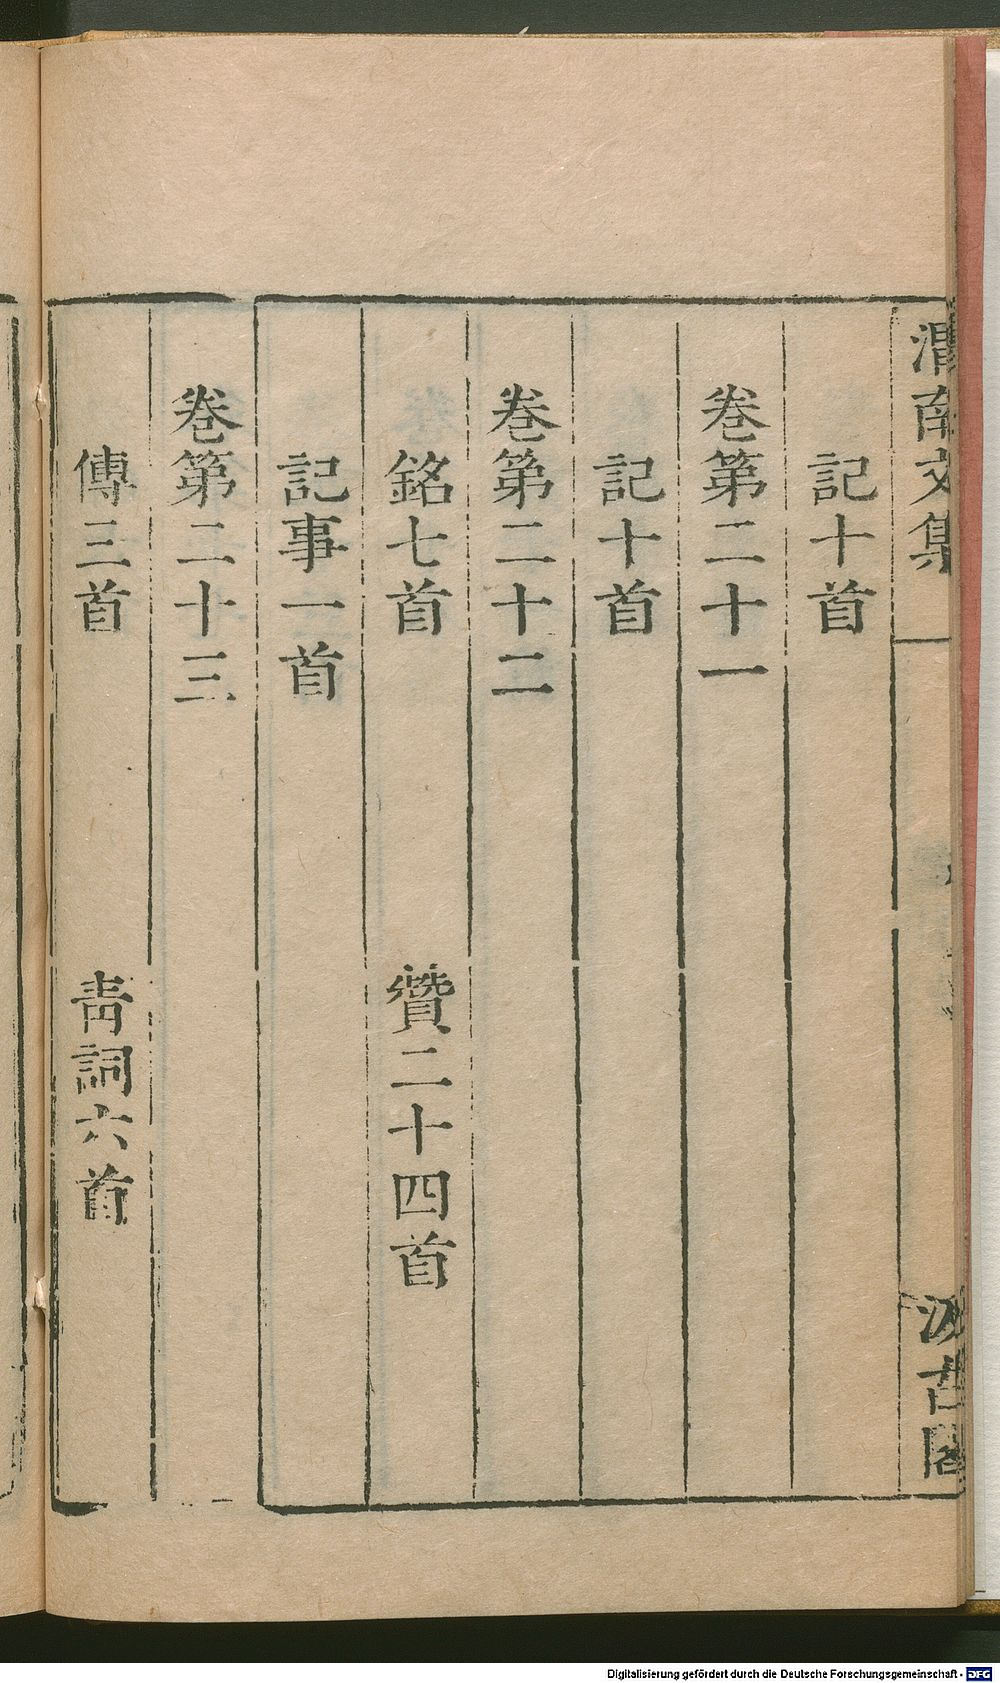 渭南文集
汲古閣
記十首
卷第二十一
記十首
卷第二十二
銘七首 贊二十四首
記事一首
卷第二十三
傳三首 青詞六首
Digitalisierung gefördert durch die Deutsche Forschungsgemeinschaft - DFG